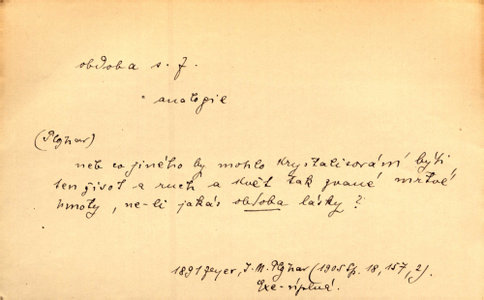 obdoba s. f.
analogie
(Plojhar)
neb co jiného by mohlo krystalisování býti
ten život a ruch a květ tak zvané mrtvé
hmoty, ne-li jakás obdoba lásky?
1891 Zeyer, J. M. Plojhar (1905 Sp. 18, 157, 2).
Exc. úplná.